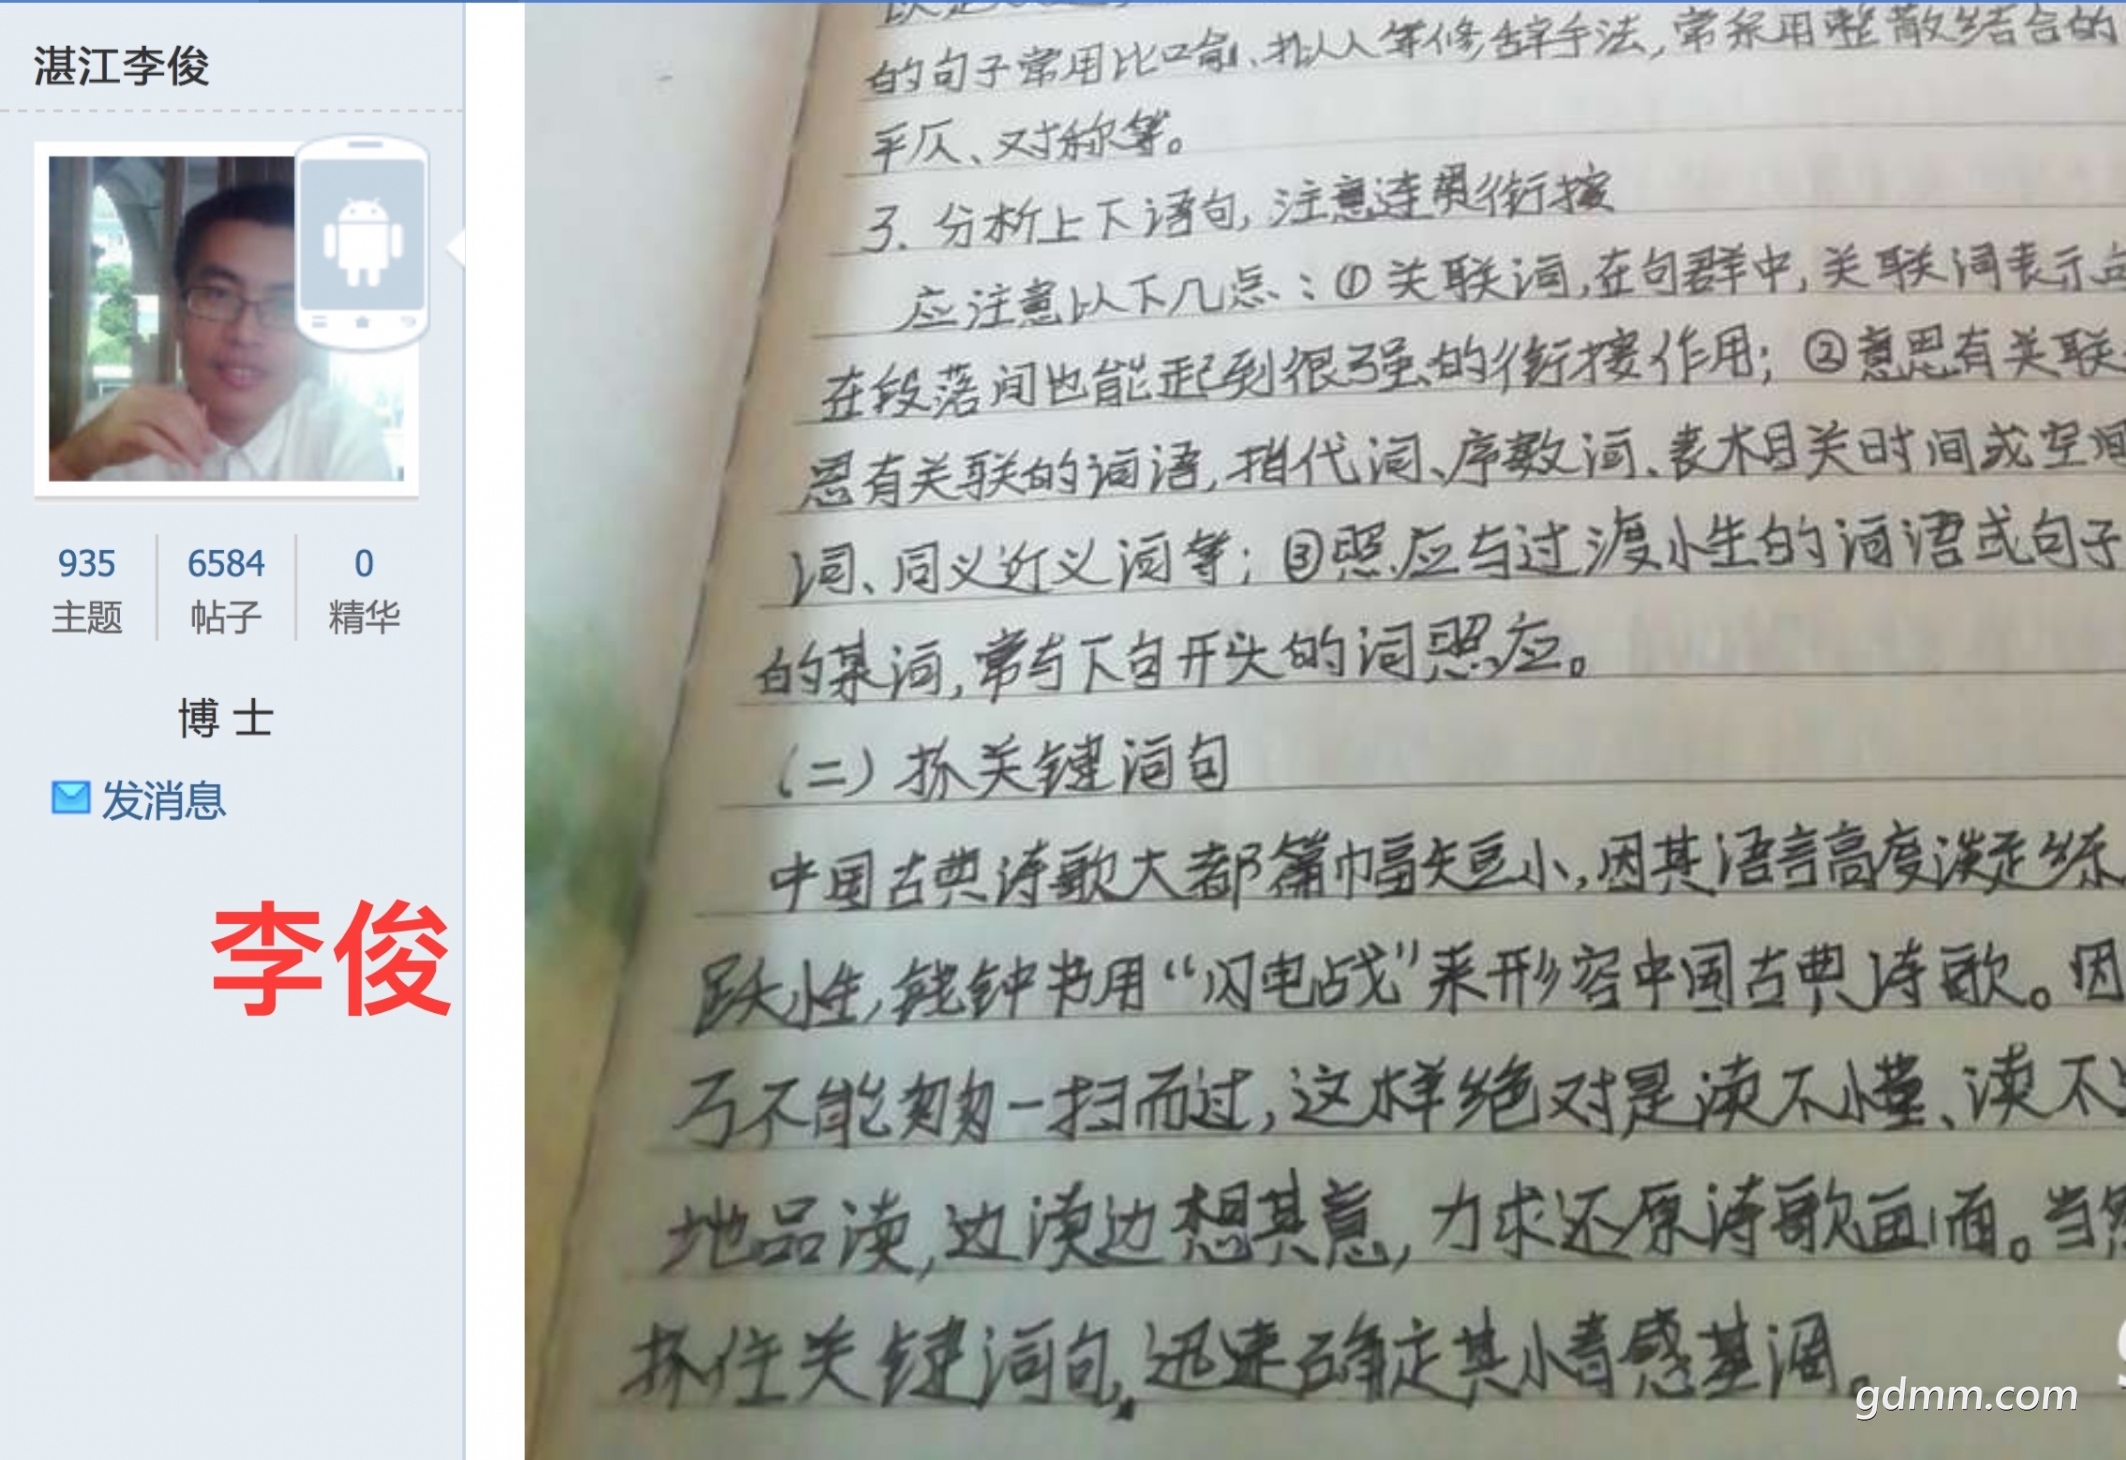 湛江李俊
935 6584 0
主题 帖子 精华
博 士
发消息
李俊
的句子常用比喻、拟人等修辞手法,常采用整散结合的
平仄、对称等。
3. 分析上下语句,注意连贯衔接
应注意以下几点:①关联词,在句群中,关联词表示
在段落间也能起到很强的衔接作用;②意思有关联
思有关联的词语,指代词、序数词、表相关时间或空间
词、同义近义词等;③照应与过渡性的词语或句子
的某词,常与下句开头的词照应。
(二)抓关键词句
中国古典诗歌大都篇幅短小,因其语言高度凝练
跃性,钱钟书用“闪电战”来形容中国古典诗歌。因
不能匆匆一扫而过,这样绝对是读不懂、读不
地品读,边读边想其意,力求还原诗歌画面。当然
抓住关键词句,迅速确定其情感基调。
gdmm.com